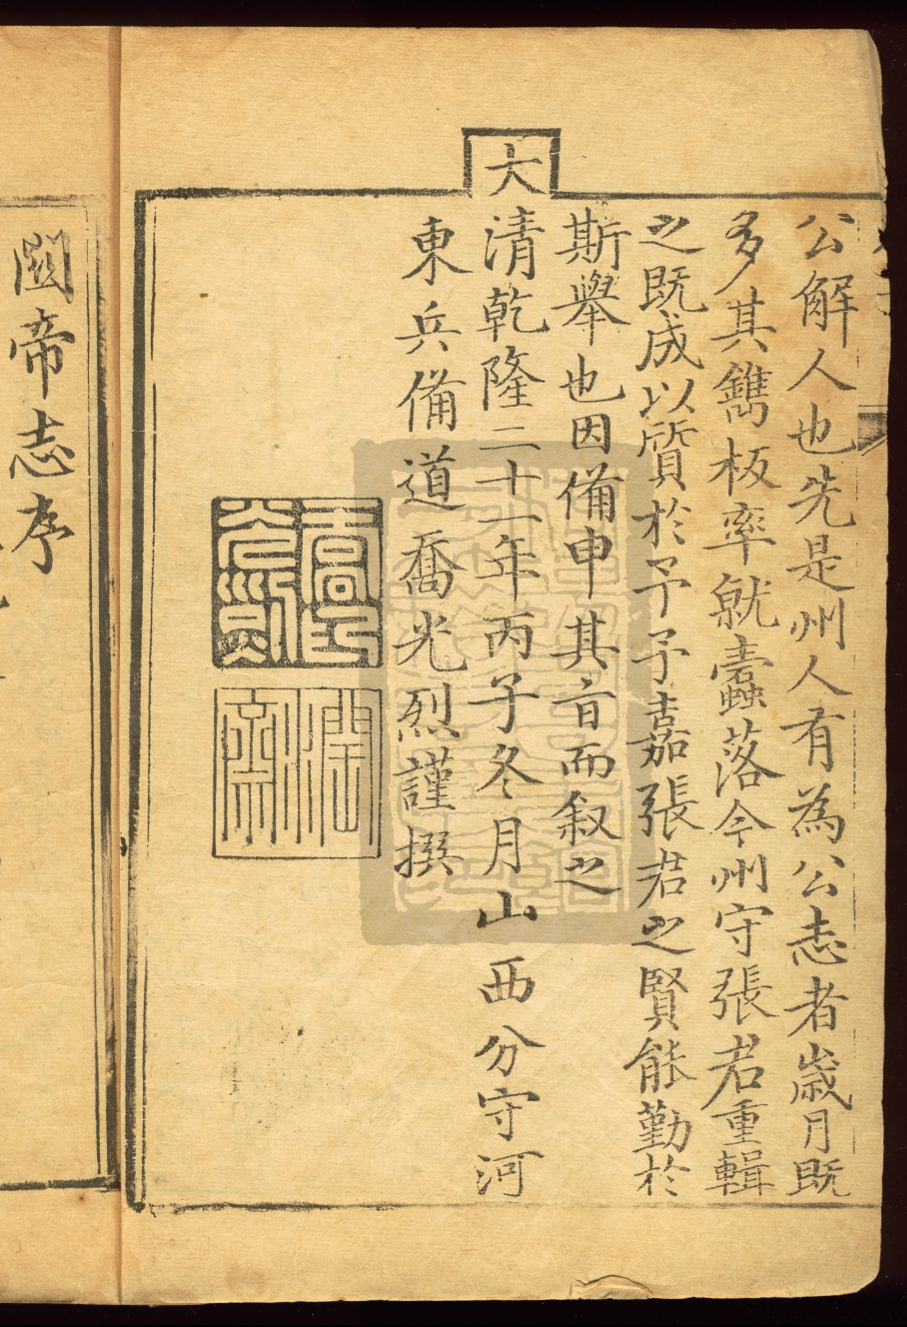 公解人也先是州人有為公志者歲月既
多其鐫板率就蠹落今州守張君重輯
之既成以質於予予嘉張君之賢能勤於
斯舉也因備申其旨而叙之
大清乾隆二十一年丙子冬月山西分守河
東兵備道喬光烈謹撰
喬氏光烈
潤齋
關帝志序